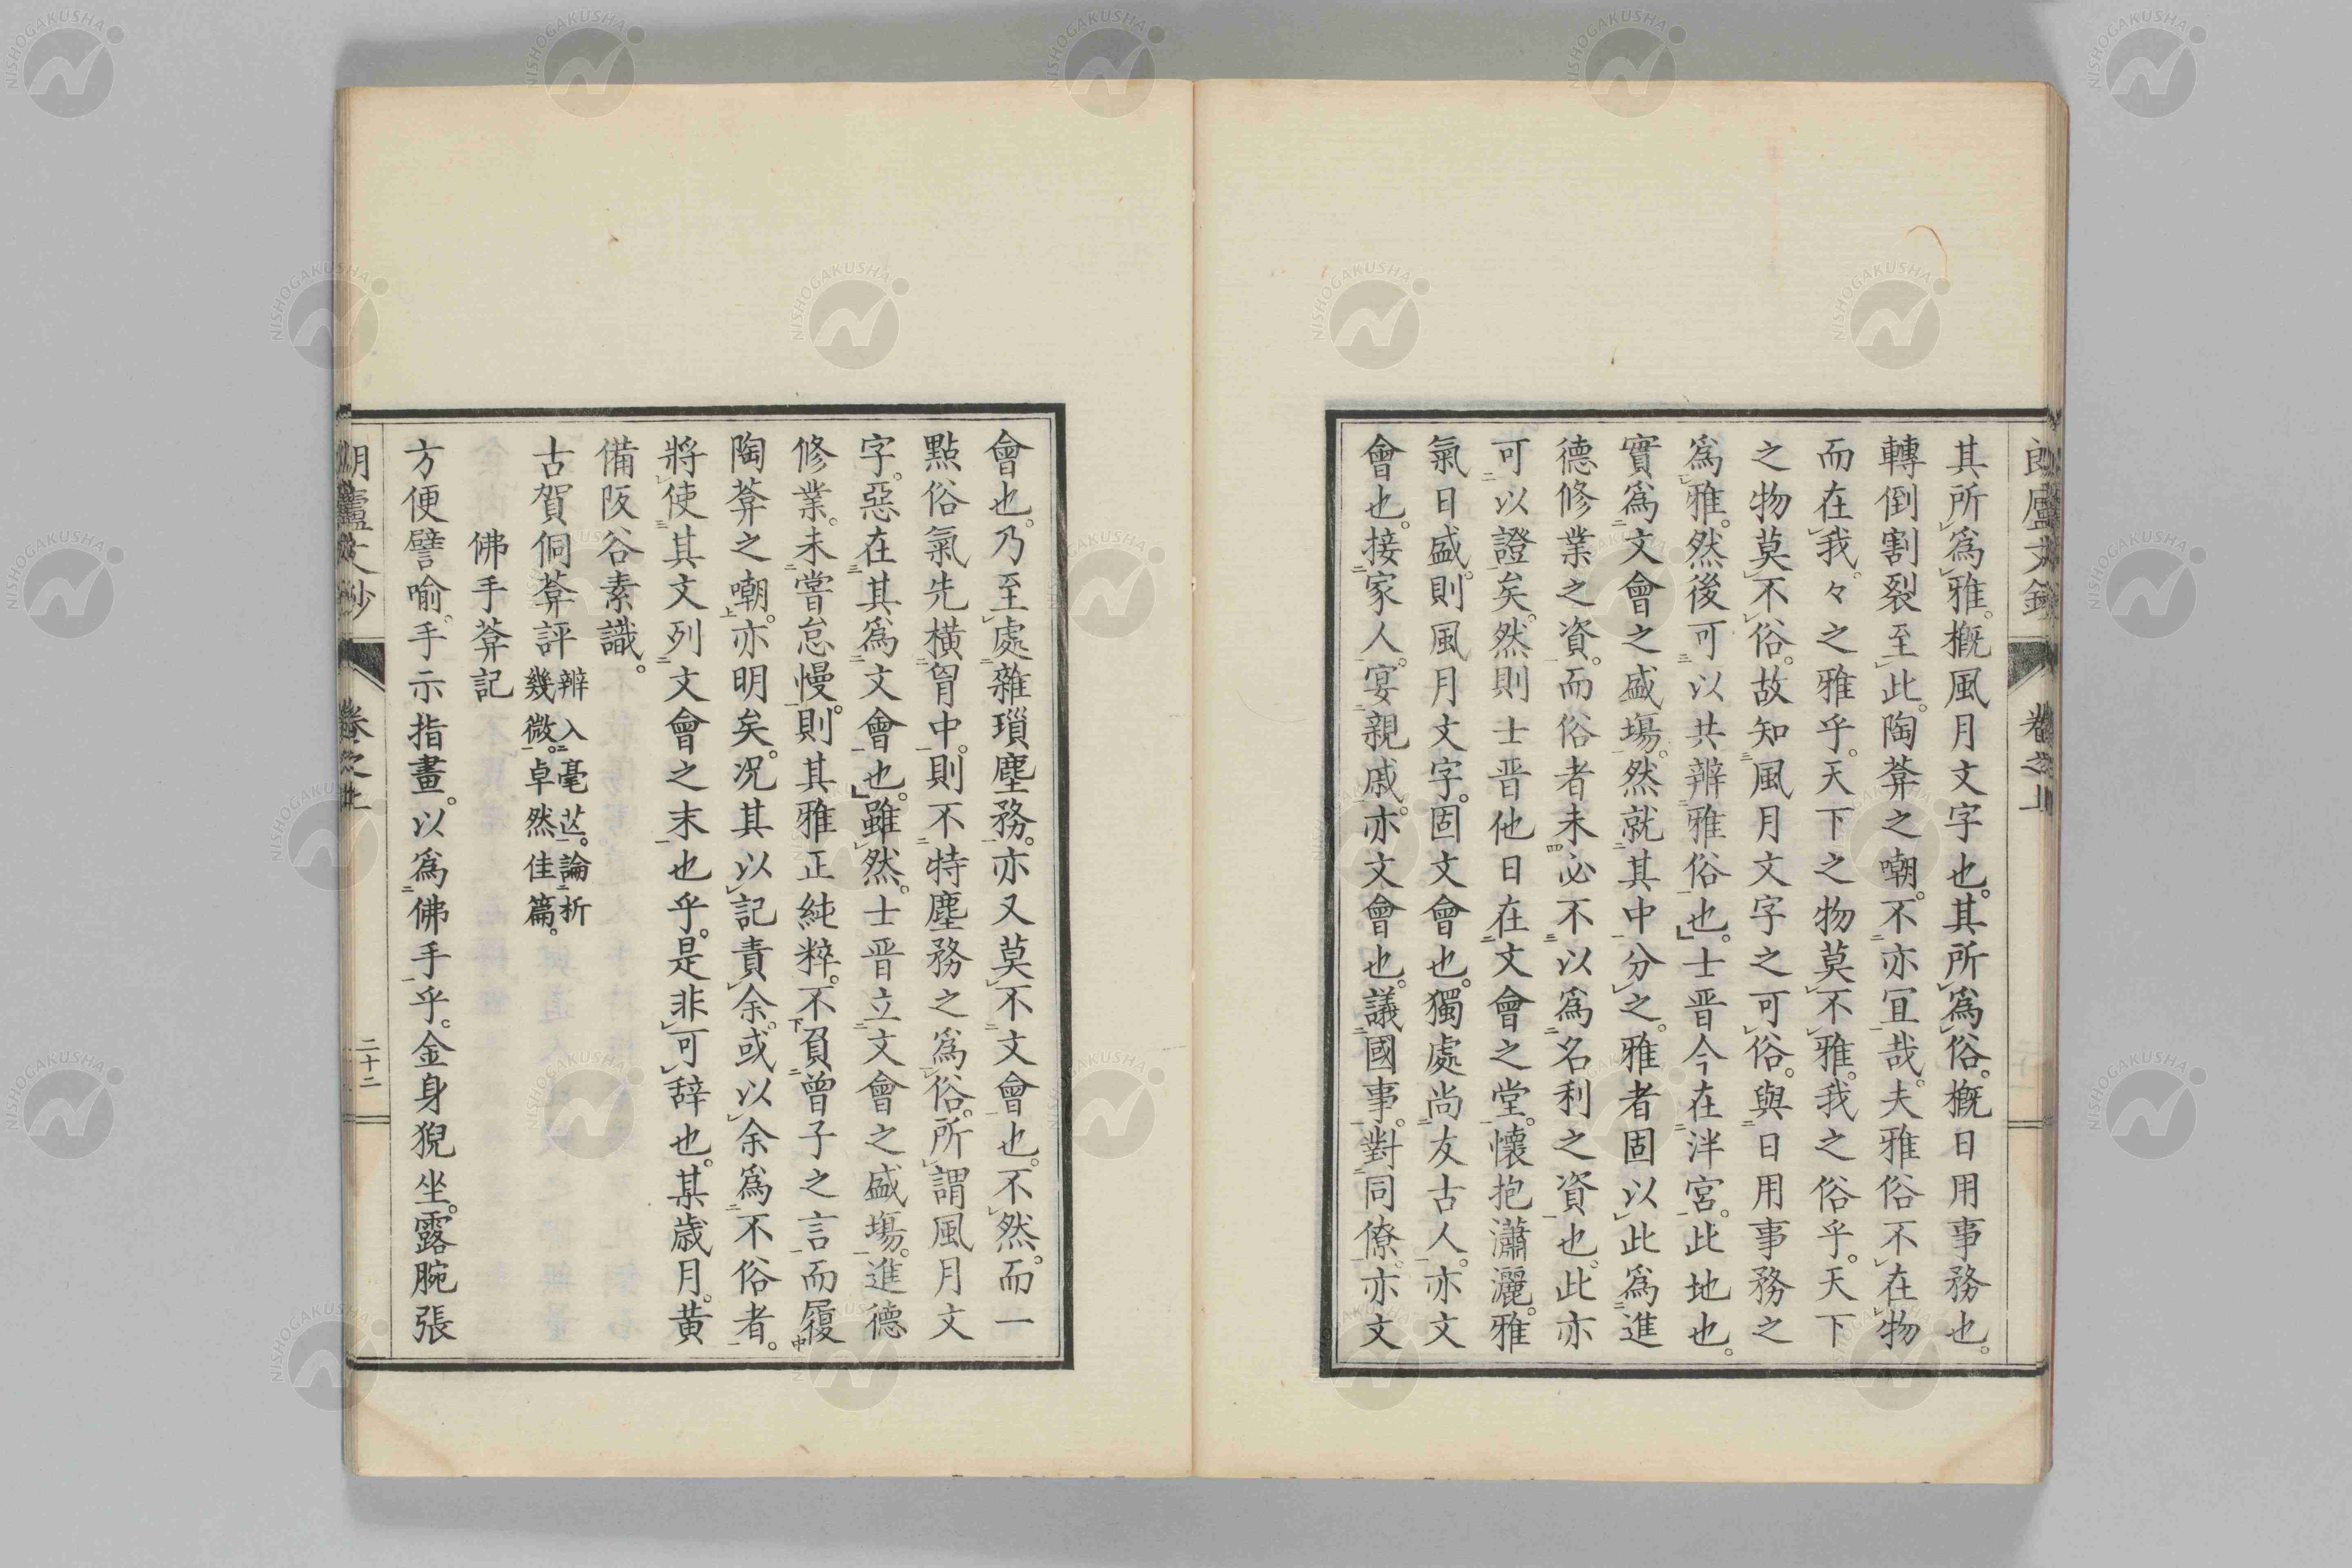 其所爲雅。槪風月文字也。其所爲俗。槪日用事務也。
轉倒割裂至此。陶葊之嘲。不亦宜哉。夫雅俗不在物
而在我。々之雅乎。天下之物莫不雅。我之俗乎。天下
之物莫不俗。故知風月文字之可俗。與日用事務之
爲雅。然後可以共辨雅俗也。士晋今在泮宮。此地也。
實爲文會之盛塲。然就其中分之。雅者固以此爲進
德修業之資。而俗者未必不以爲名利之資也。此亦
可以證矣。然則士晋他日在文會之堂。懷抱瀟灑。雅
氣日盛。則風月文字。固文會也。獨處尚友古人。亦文
會也。接家人。宴親戚。亦文會也。議國事。對同僚。亦文
卷之上
會也。乃至處雜瑣塵務。亦又莫不文會也。不然。而一
點俗氣先橫胷中。則不特塵務之爲俗。所謂風月文
字。惡在其爲文會也。雖然。士晋立文會之盛塲。進德
修業。未嘗怠慢。則其雅正純粹。不負曾子之言而履
陶葊之嘲。亦明矣。况其以記責余。或以余爲不俗者。
將使其文列文會之末也乎。是非可辞也。某歳月。黄
備阪谷素識。
古賀侗葊評 辨入毫芒。論析
幾微。卓然佳篇。
佛手葊記
方便譬喻。手示指畫。以爲佛手乎。金身猊坐。露腕張
卷之上
二十二
NISHOGAKUSHA